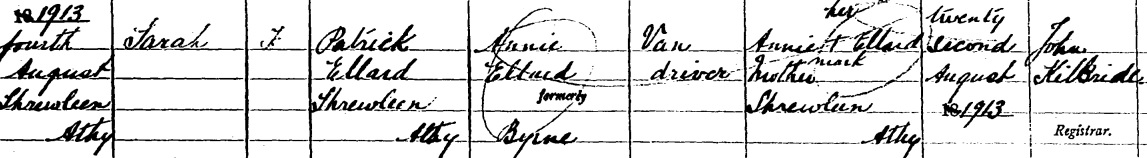 18 1913 her twenty
fourth Sarah F Patrick Annie Van Annie + Ellard second John
August Ellard Ellard driver mark Mother August KilBride
Shrewleen Shrewleen formerly Shrewleen 18 1913
Athy Athy Byrne Athy Registrar.